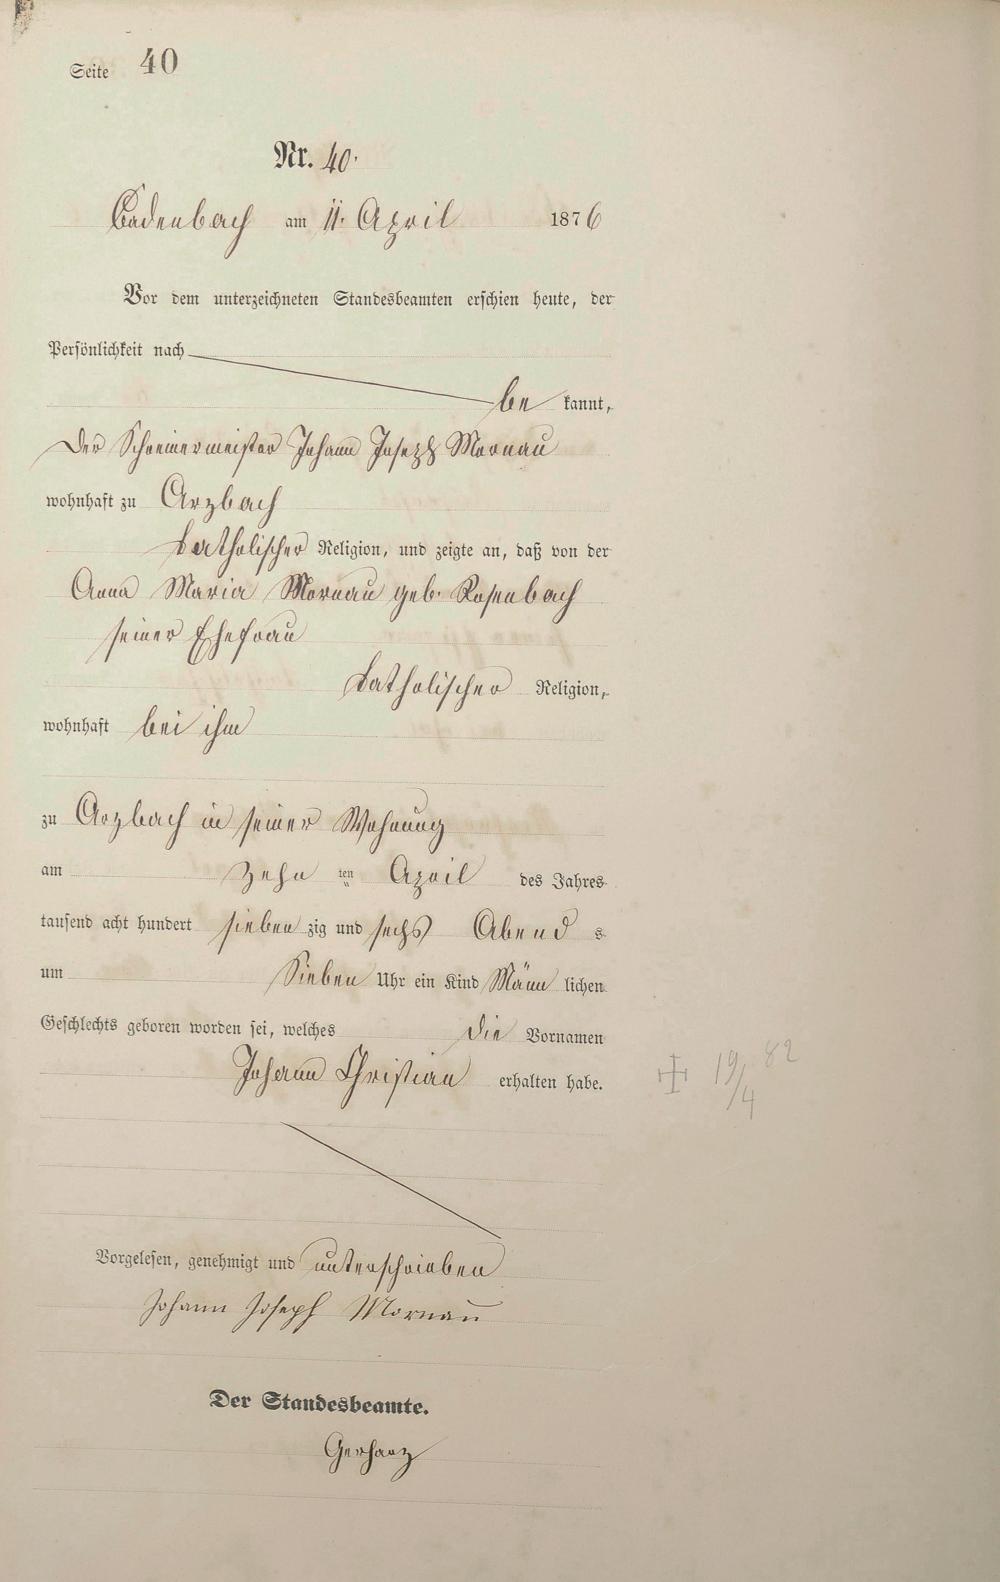 Seite 40
Nr. 40.
Cadenbach am 11. April 1876
Vor dem unterzeichneten Standesbeamten erschien heute, der
Persönlichkeit nach
be kannt,
Der Schreinermeister Johann Joseph Mornau
wohnhaft zu Arzbach
katholischer Religion, und zeigte an, daß von der
Anna Maria Mornau geb. Rosenbach
seiner Ehefrau
katholischer Religion,
wohnhaft bei ihm
zu Arzbach in seiner Wohnung
am zehn ten April des Jahres
tausend acht hundert sieben zig und sechs Abend s
um Sieben Uhr ein Kind Männ lichen
Geschlechts geboren worden sei, welches die Vornamen
Johann Christian erhalten habe.
19/4 82
Vorgelesen, genehmigt und unterschrieben
Johann Joseph Mornau
Der Standesbeamte.
Gerharz